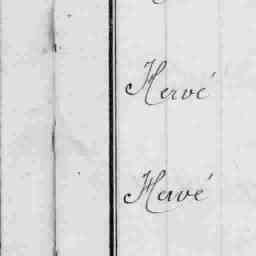 Hervé
Hervé